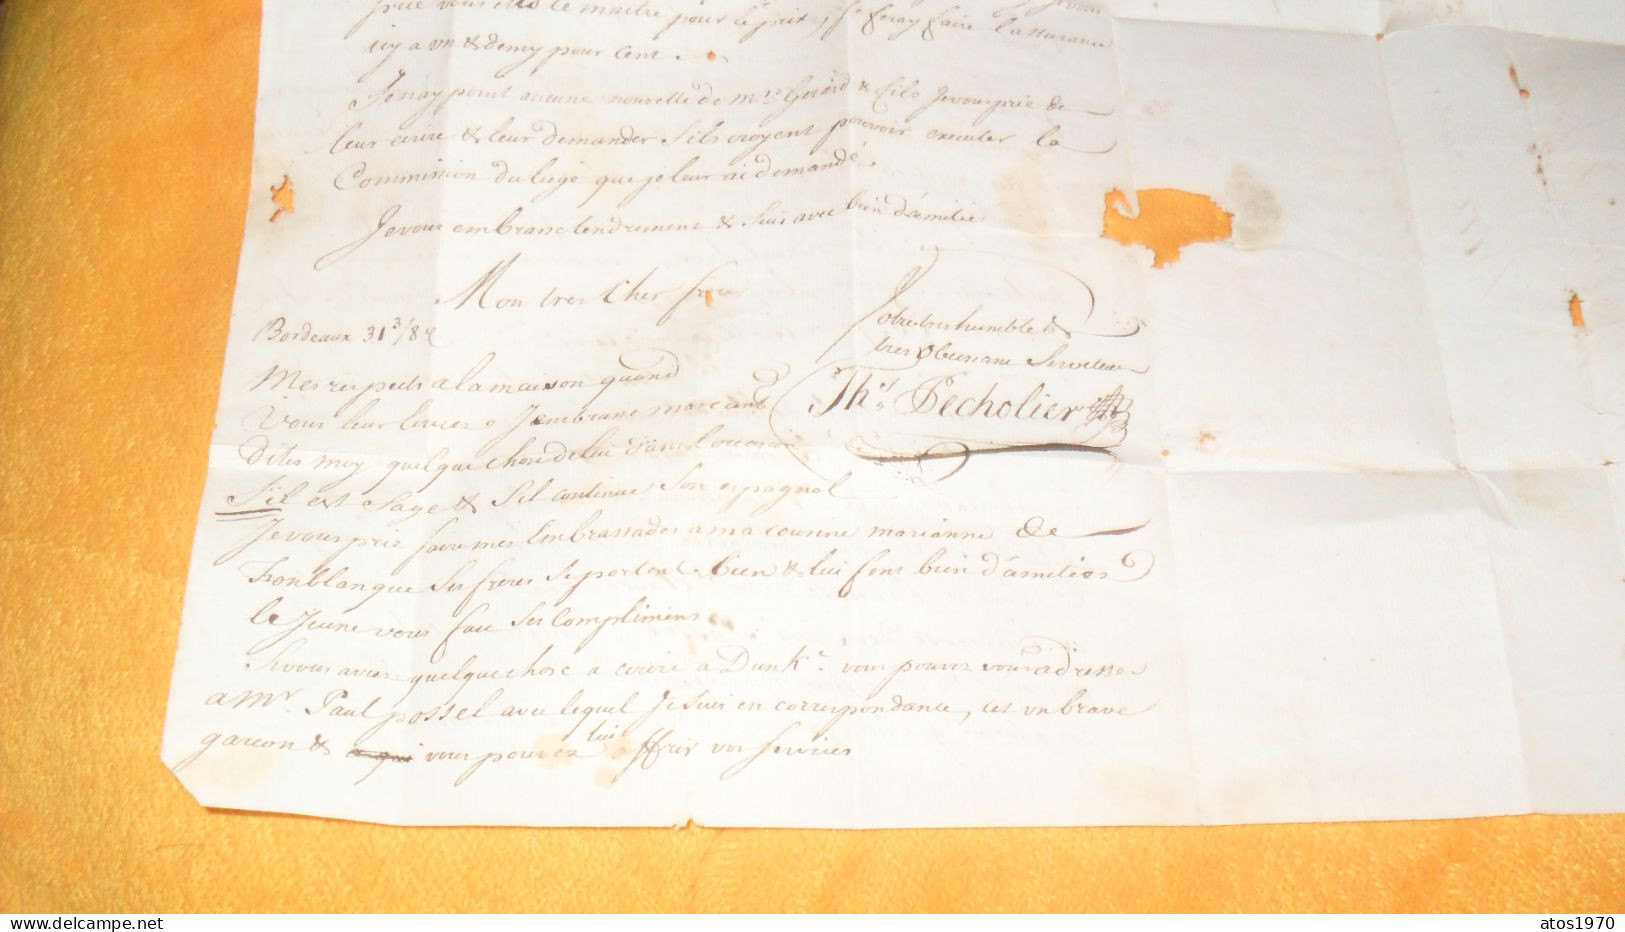 prie vous etes le maitre pour le prix, je feray faire l'assurance
il y a un & demy pour Cent
Je n'ay point aucune nouvelle de Mrs Gerard & fils Je vous prie de
leur ecrire & leur demander s'ils croyent pouvoir executer la
Commission du liege que je leur ai demandé
Je vous embrasse tendrement & suis avec bien d'amitié
Mon tres Cher frere
Votre tres humble &
tres obeissant Serviteur
Bordeaux 31 3/8
Ths Pecholier
Mes respects a la maison quand
vous leur J'embrasse marcand
dites moy quelque chose de lui dans l'occasion
s'il est sage & s'il continue son espagnol
Je vous prie faire mes Embrassades a ma cousine marianne de
Fonblanque ses freres se portent bien & lui font bien d'amities
le Jeune vous fait ses complimens
Si vous avies quelque chose a ecrire a Dunke. vous pouvez vous adresser
a Mr. Paul possel avec lequel Je suis en correspondance, cest un brave
garcon & vous pouvez lui offrir vos services
atos1970